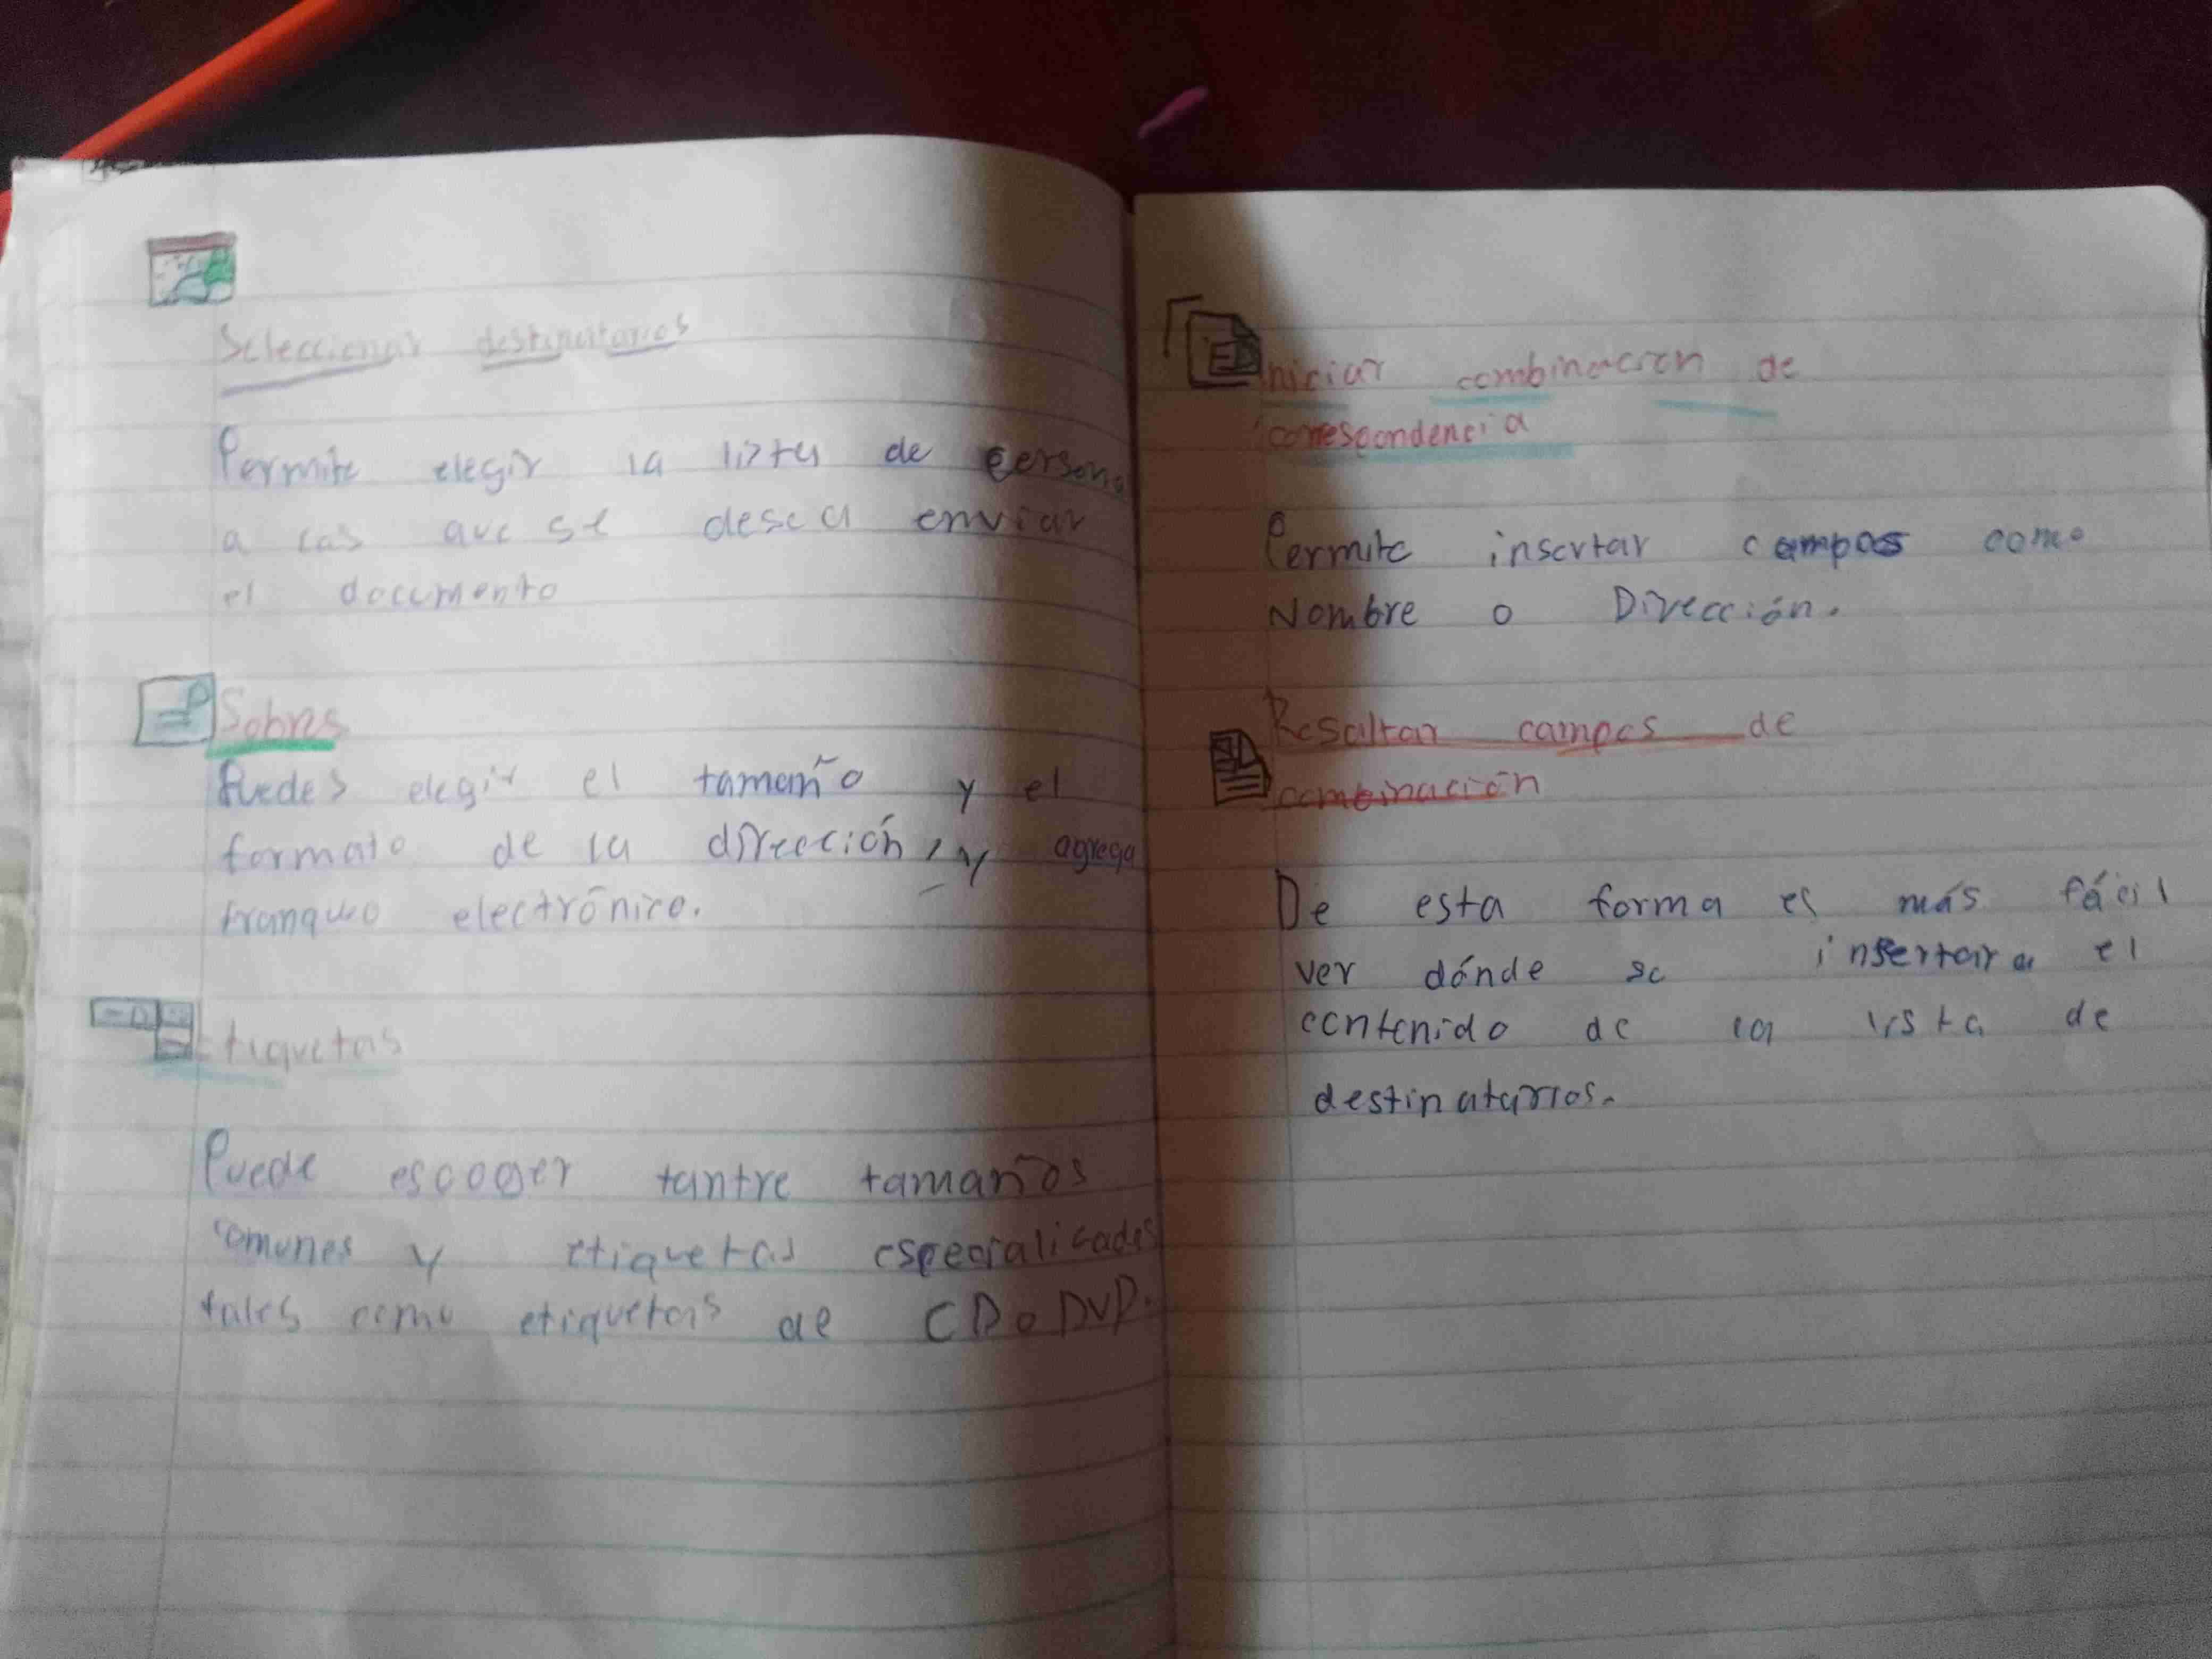 Seleccionar destinatarios
Permite elegir la lista de persona
a las que se desea enviar
el documento
Sobres
Puedes elegir el tamaño y el
formato de la dirección, y agrega
franqueo electrónico.
Etiquetas
Puede escoger tantre tamaños
comunes y etiquetas especialicades
tales como etiquetas de CD o DVD.
Iniciar combinacion de
correspondencia
Permite insertar campos como
Nombre o Dirección.
Resaltar campos de
combinación
De esta forma es más fácil
ver dónde se insertara el
contenido de la lista de
destinatarios.